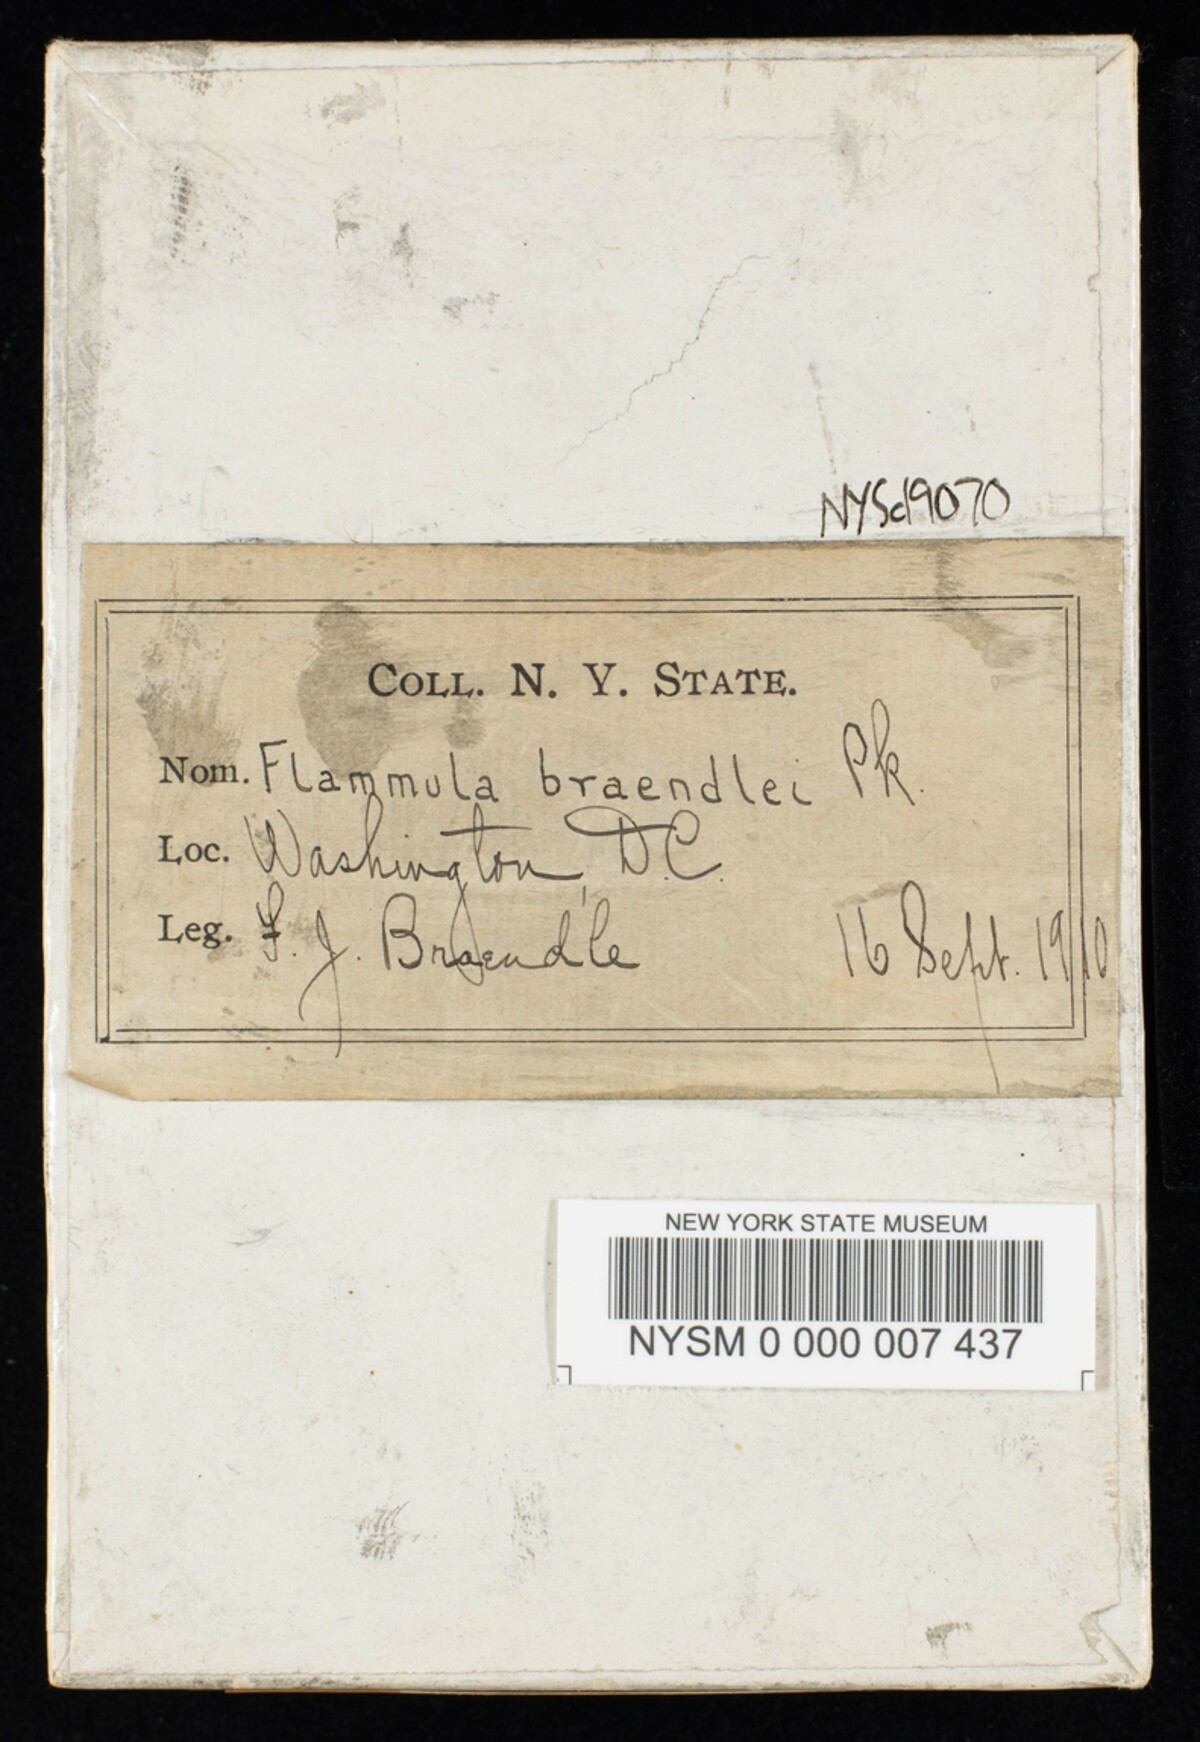 NYSd9070
COLL. N. Y. STATE.
Nom. Flammula braendlei Pk.
Loc. Washington, D.C.
Leg. F. J. Braendle 16 Sept. 1910
NEW YORK STATE MUSEUM
NYSM 0 000 007 437